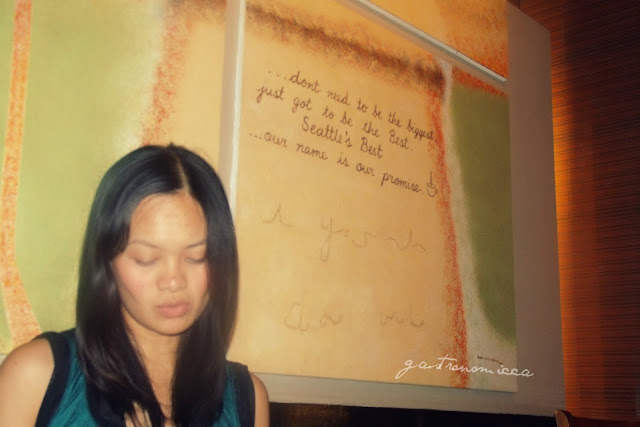 ...dont need to be the biggest
just got to be the Best.
Seattle's Best
...our name is our promise
gastronomicca